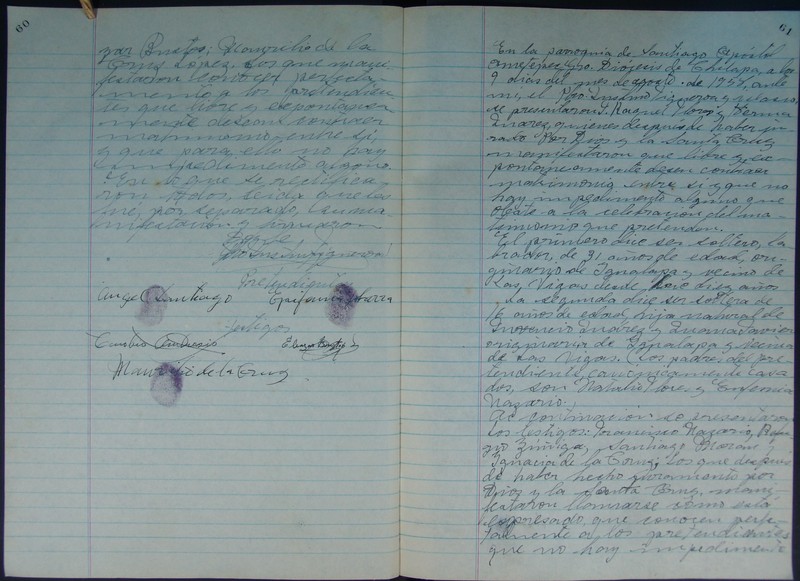 60
Bustos; Maurilio de la
Cruz López, los que mani
festaron conocer perfecta
mente a los pretendien
tes que libre y espontanea
mente desean contraer
matrimonio entre sí
y que para ello no hay
impedimento alguno.
En lo que se ratifica
ron todos, leída que
fue, por separado, su ma
nifestación y firmaron
Pretendientes
Angel Santiago
Testigos
Maurilio de la Cruz
61
En la parroquia de Santiago Apóstol
Ometepec, Gro. Diócesis de Chilapa, a los
9 días del mes de agosto de
mi, el Pbro.
se presentaron:
Juárez, quienes después de haber ju
rado por Dios y la Santa Cruz
manifestaron que libre y es
pontaneamente desean contraer
matrimonio entre sí y que no
hay impedimento alguno que
obste a la celebración del ma
trimonio que pretenden.
El primero dice ser soltero, la
brador, de 21 años de edad, ori
ginario de Igualapa y vecino de
Las Vigas desde hace diez años
La segunda dice ser soltera de
16 años de edad, hija natural de
Juárez y
originaria de Igualapa y vecina
de Las Vigas. Los padres del pre
tendiente, canónicamente casa
dos, son Natalio Flores y Eufemia
Nazario.
A continuación se presentaron
los testigos: Francisco Nazario,
Zúñiga, Santiago Morán y
Ignacio de la Cruz; los que después
de haber hecho juramento por
Dios y la Santa Cruz, mani
festaron llamarse como está
expresado, que conocen perfec
tamente a los pretendientes
que no hay impedimento